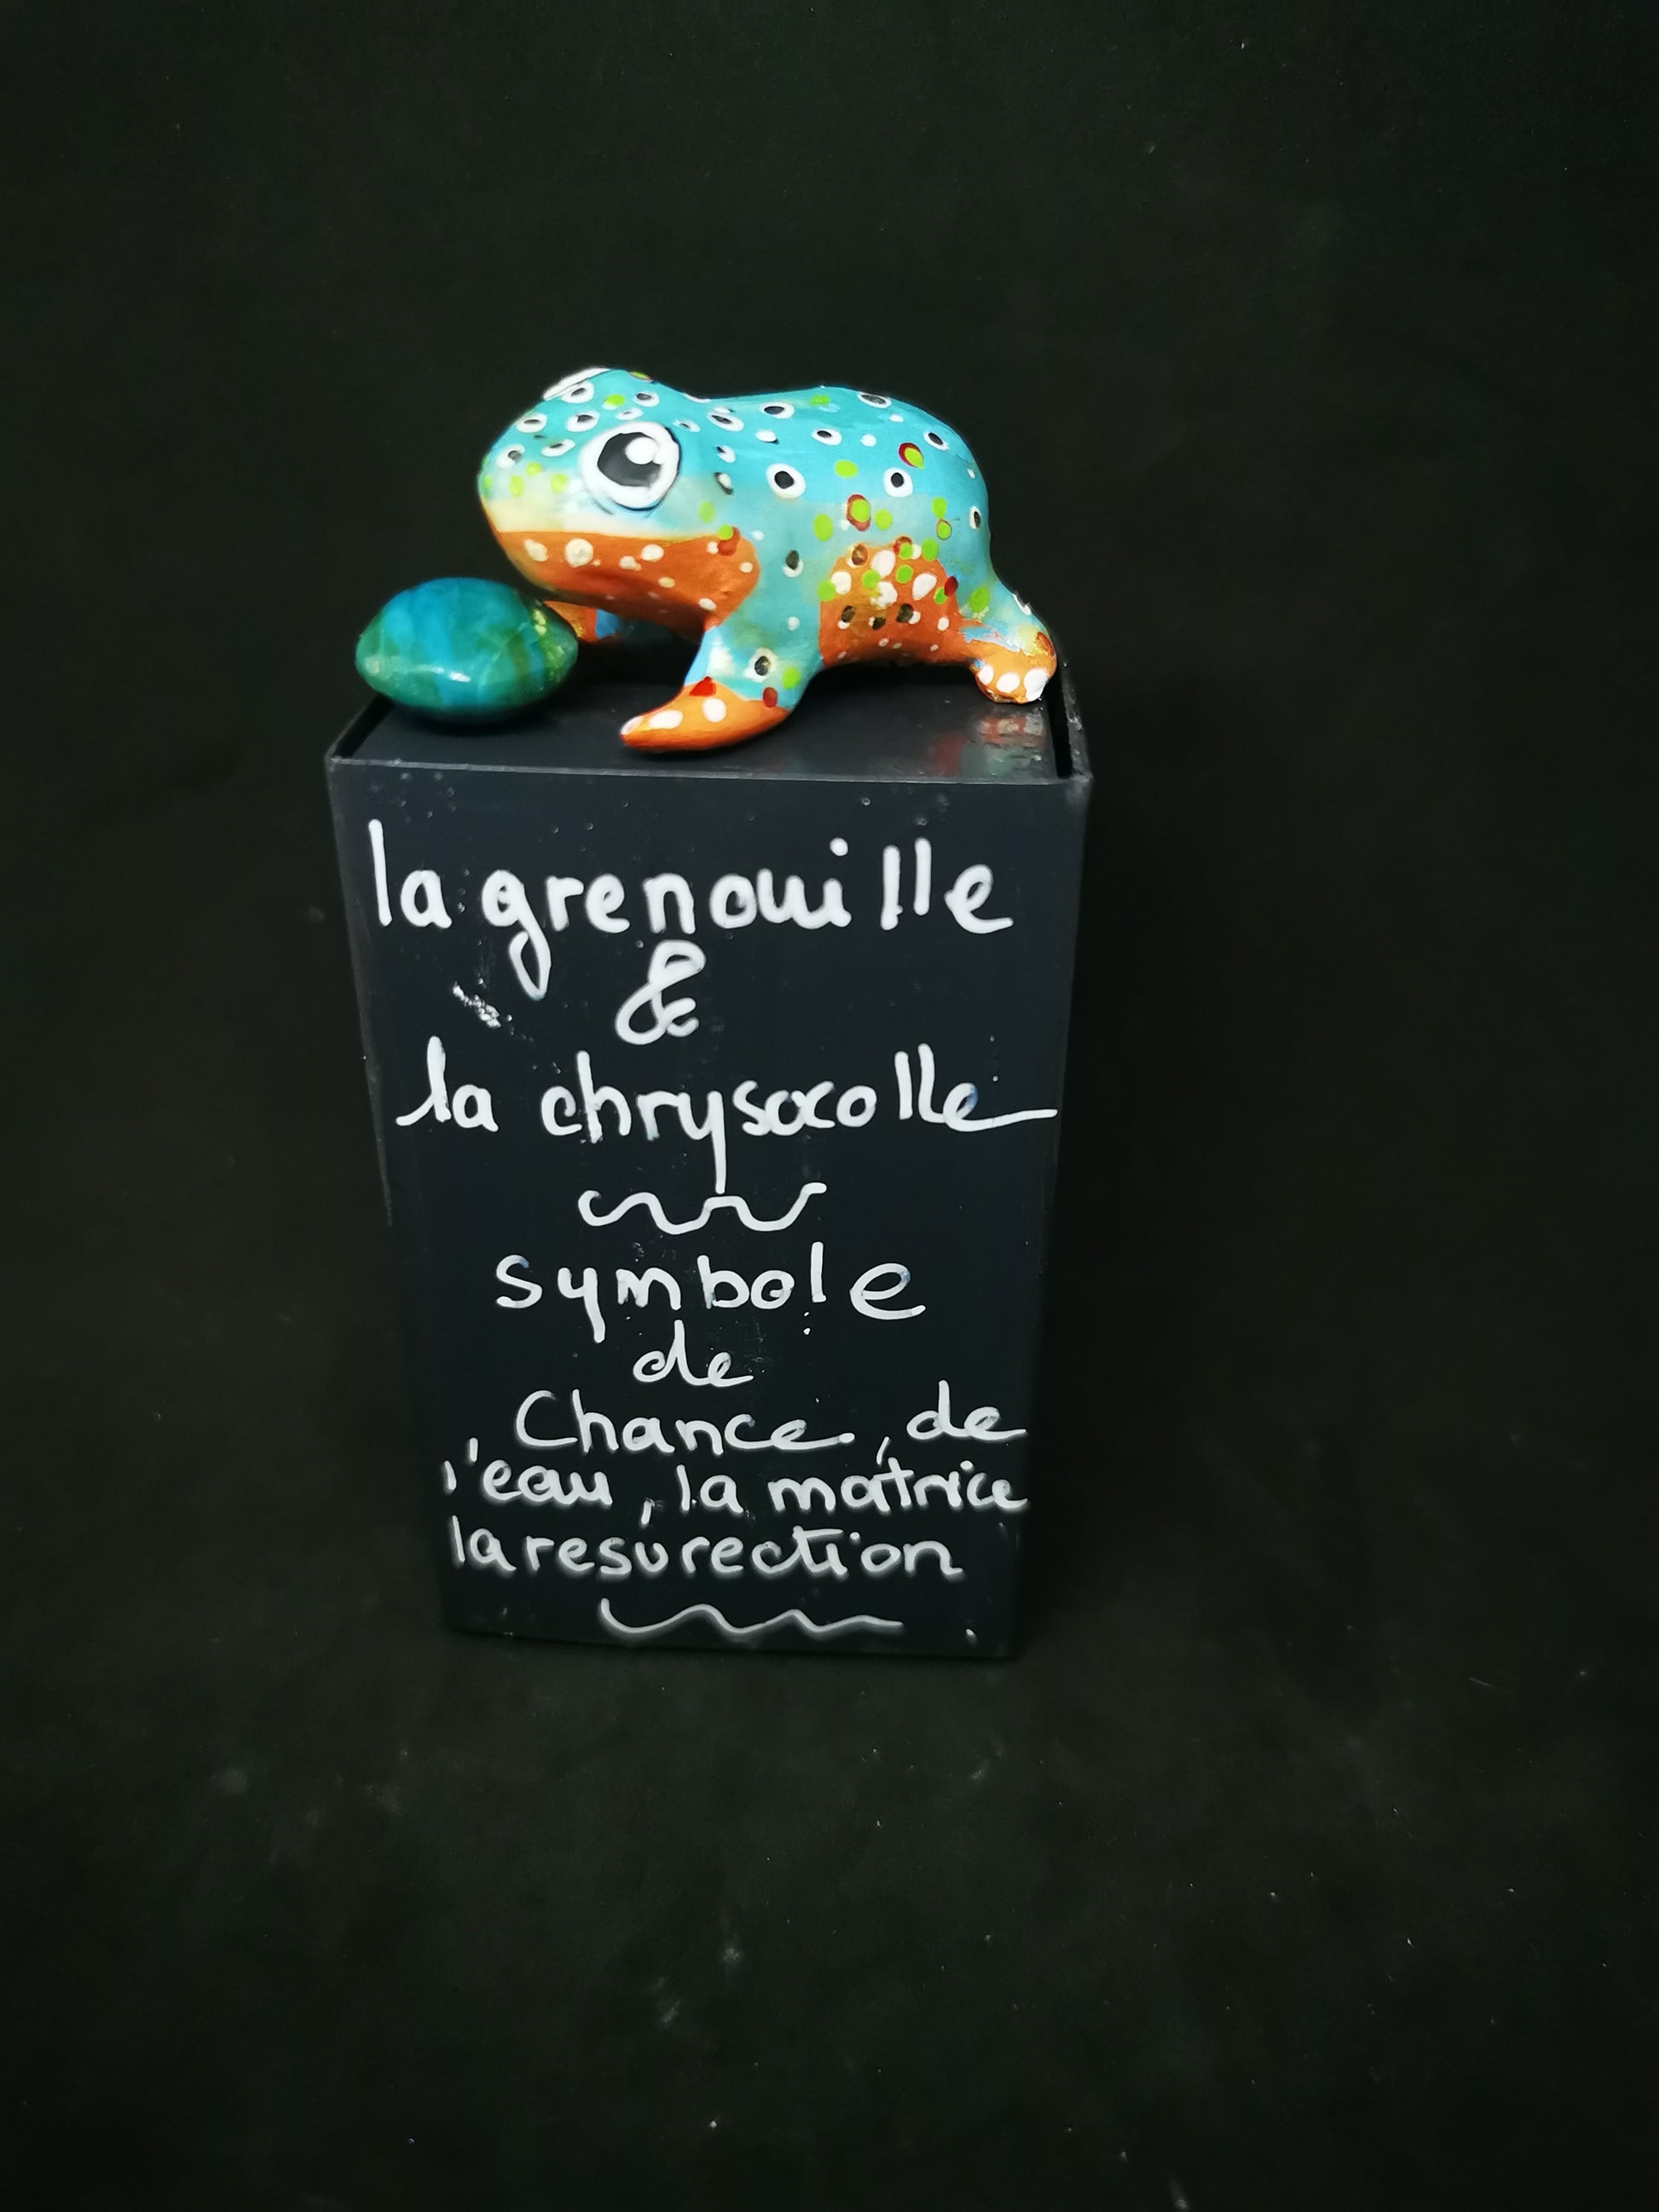 la grenouille
&
la chrysocolle
symbole
de
Chance, de
l'eau, la matrice
la resurection